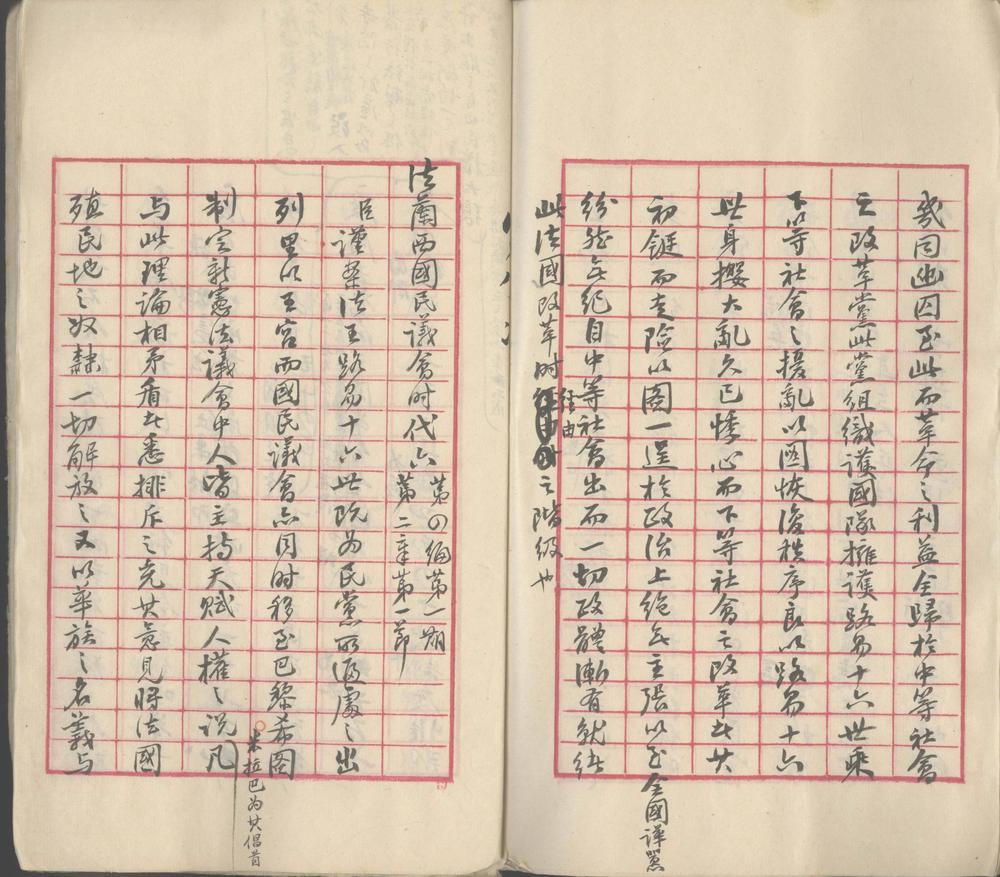 幾同幽囚至此而革命之利益全歸於中等社會
之改革黨此黨組織護國隊擁護路易十六世乘
下等社會之擾亂以圖恢復秩序良以路易十六
世身攖大亂久已悸心而下等社會之改革者其
初鋌而走險以圖一逞於政治上絕無主張以至全國譁囂
紛然無紀自中等社會出而一切政體漸有就緒
此法國改革時經由之階級也
法蘭西國民議會時代六 第四編第一期
第二章第一節
臣謹案法王路易十六世既為民黨所逼處之出
列里以王宮而國民議會亦同時移至巴黎希圖
制定新憲法議會中人皆主持天賦人權之說凡
米拉巴為其倡首
與此理論相矛盾者悉排斥之克其意見將法國
殖民地之奴隸一切解放之又以華族之名義與